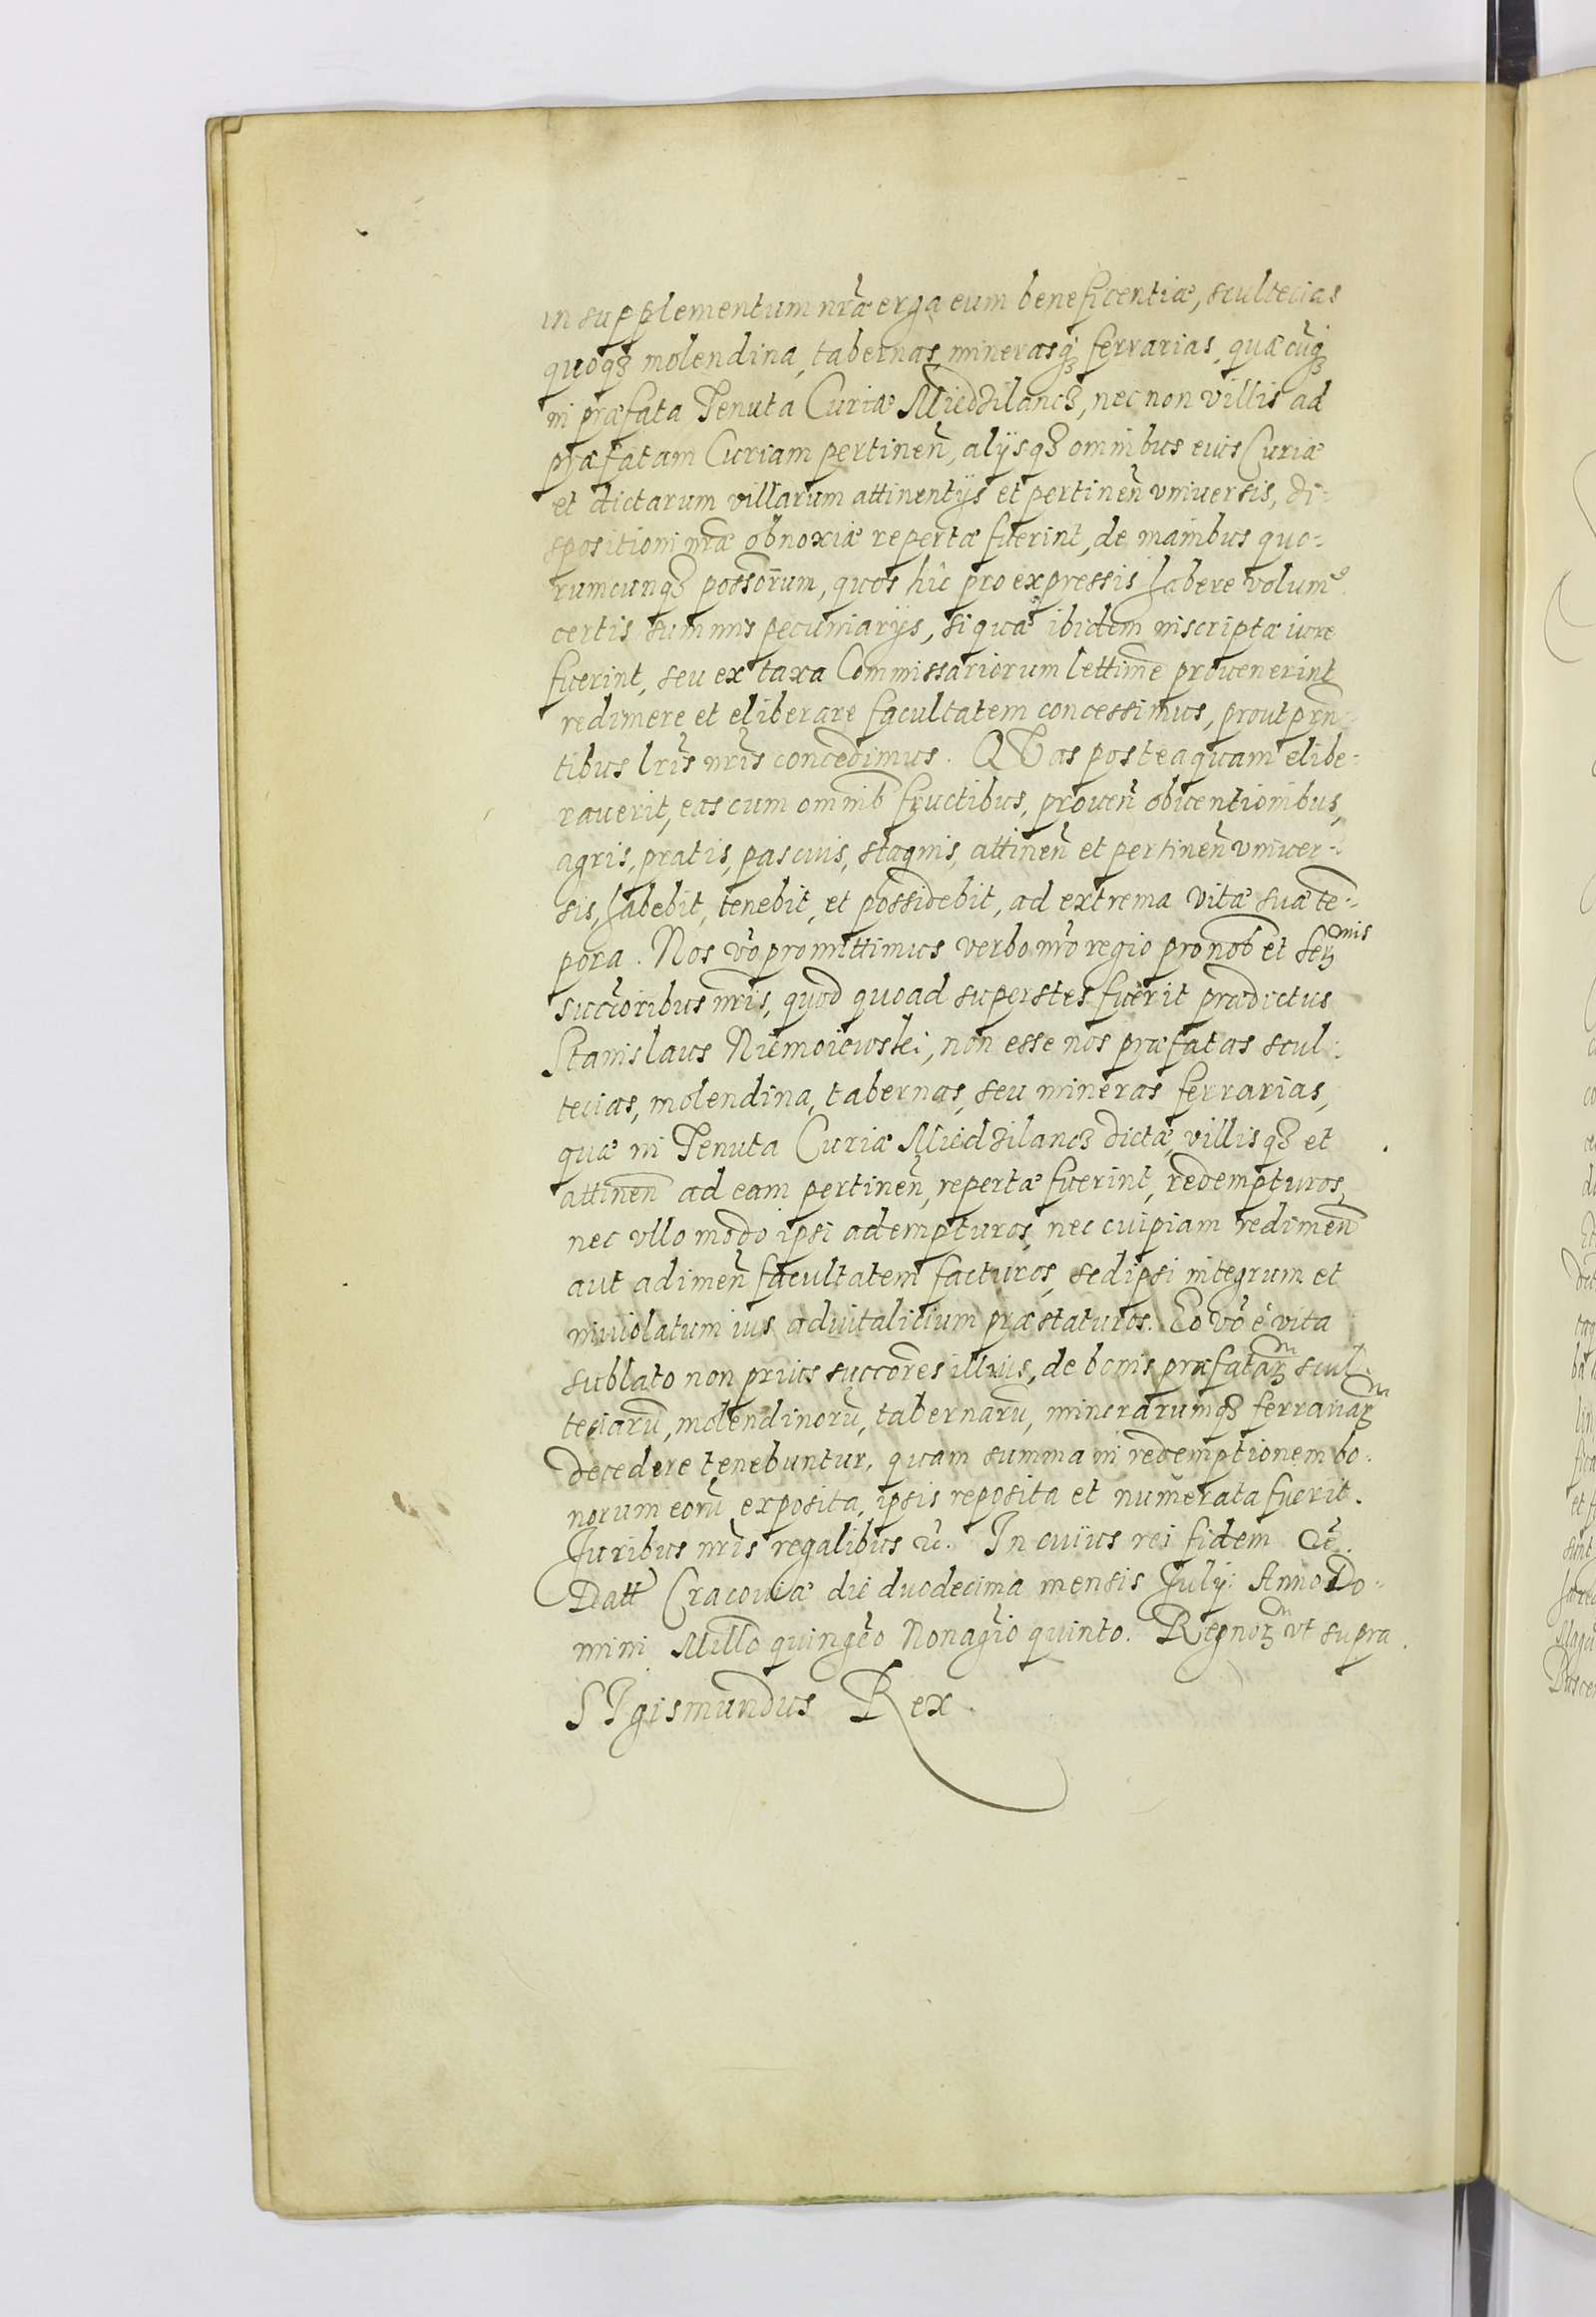 in supplementum nr̃æ erga eum beneficentiæ, scultecias
quoqȝ molendina, tabernas minerasqȝ ferrarias, quæcũqȝ
in præfata Tenuta Curiæ Miedzilancȝ, nec non villis ad
præfatam Curiam pertineñ, alijsqȝ omnibus euis Curiæ
et dictarum villarum attinentijs et pertineñ vniuersis, di-
spositioni nr̃æ obnoxiæ repertæ fuerint, de manibus quo-
rumcunqȝ possor̃um, quos hîc pro expressis habere volumꝰ
certis summis pecuniarijs, si quæ ibidem inscriptæ iure
fuerint, seu ex taxa Commissariorum lettime prouenerint
redimere et eliberare facultatem concessimus, prout prñ-
tibus lr̃is nr̃is concedimus. QVas posteaquam elibe-
rauerit, eas cum omnib fructibus, proueñ obuentionibus,
agris, pratis, pascuis, stagnis, attineñ et pertineñ vniuer-
sis, habebit, tenebit, et possidebit, ad extrema vitæ suæ tẽ-
pora. Nos vo promittimus verbo nr̃o regio pro nob et Serᵐⁱˢ
succoribus nr̃is, quod quoad superstes fuerit prædictus
Stanislaus Niemoiewski, non esse nos præfatas scul-
tecias, molendina, tabernas, seu mineras ferrarias,
quæ in Tenuta Curiæ Miedzilancȝ dictæ, villisqȝ et
attineñ ad eam pertineñ, repertæ fuerint, redempturos,
nec vllo modo ipsi adempturos, nec cuipiam redimeñ
aut adimeñ facultatem facturos, sed ipsi integrum et
inuiolatum ius aduitalitium præstaturos. Eo vo è vita
sublato non prius succores illius, de bonis præfatarᵐ scul-
teciarũ, molendinorũ, tabernarũ, minerarumqȝ ferrariarᵐ
decedere tenebuntur, quam summa in redemptionem bo-
norum eorũ exposita, ipsis reposita et numerata fuerit.
Juribus nr̃is regalibus &c. In cuius rei fidem &c.
Datt Cracouiæ die duodecima mensis Julij Anno Do-
mini Millo quingẽo Nonagĩo quinto. Regnorᵐ vt supra.
SIgismundus Rex